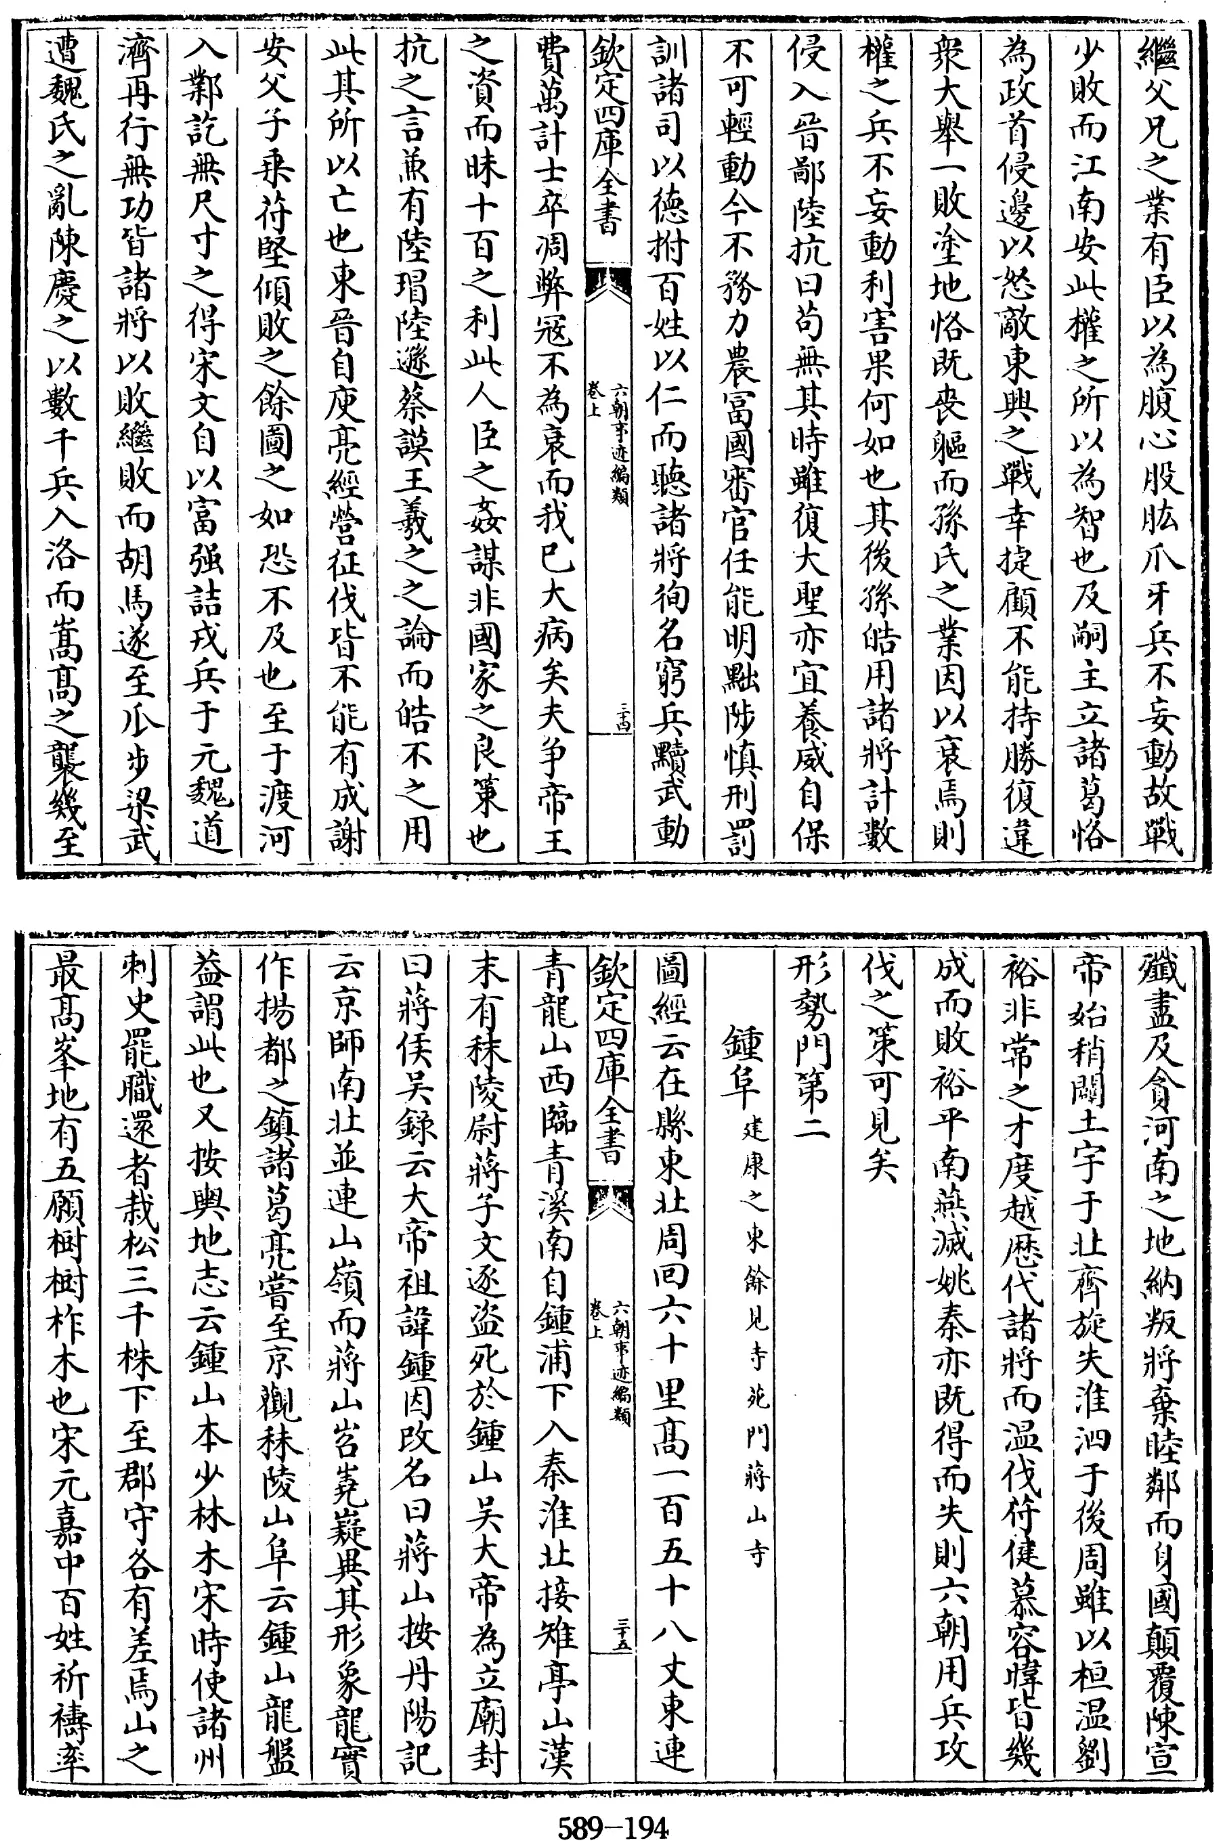 繼父兄之業有臣以為腹心股肱爪牙兵不妄動故戰
少敗而江南安此權之所以為智也及嗣主立諸葛恪
為政首侵邊以怒敵東興之戰幸捷顧不能持勝復違
衆大舉一敗塗地恪既喪軀而孫氏之業因以衰焉則
權之兵不妄動利害果何如也其後孫皓用諸將計數
侵入晉鄙陸抗曰苟無其時雖復大聖亦宜養威自保
不可輕動今不務力農富國審官任能明黜陟慎刑罰
訓諸司以德拊百姓以仁而聽諸將徇名窮兵黷武動
欽定四庫全書
六朝事迹編類
卷上
三十四
費萬計士卒凋弊冦不為衰而我已大病矣夫争帝王
之資而昧十百之利此人臣之姦謀非國家之良策也
抗之言蒸有陸瑁陸遜蔡謨王羲之之論而皓不之用
此其所以亡也東晉自庾亮經營征伐皆不能有成謝
安父子乗苻堅傾敗之餘圖之如恐不及也至于渡河
入鄴訖無尺寸之得宋文自以富强詰戎兵于元魏道
濟再行無功皆諸將以敗繼敗而胡馬遂至瓜步梁武
遭魏氏之亂陳慶之以數千兵入洛而嵩髙之襲幾至
殲盡及貪河南之地納叛將棄睦鄰而身國顛覆陳宣
帝始稍闢土宇于北齊旋失淮泗于後周雖以桓温劉
裕非常之才度越歴代諸將而温伐苻健慕容暐皆幾
成而敗裕平南燕滅姚秦亦既得而失則六朝用兵攻
伐之策可見矣
形勢門第二
鍾阜建康之東餘見寺苑門蔣山寺
圖經云在縣東北周回六十里髙一百五十八丈東連
欽定四庫全書
六朝事迹編類
卷上
三十五
青龍山西臨青溪南自鍾浦下入秦淮北接雉亭山漢
末有秣陵尉蔣子文逐盜死於鍾山吴大帝為立廟封
曰蔣侯吴錄云大帝祖諱鍾因改名曰蔣山按丹陽記
云京師南北並連山嶺而蔣山岧嶤嶷異其形象龍實
作揚都之鎮諸葛亮嘗至京觀秣陵山阜云鍾山龍盤
葢謂此也又按輿地志云鍾山本少林木宋時使諸州
刺史罷職還者栽松三千株下至郡守各有差焉山之
最髙峯地有五願樹樹柞木也宋元嘉中百姓祈禱率
589-194